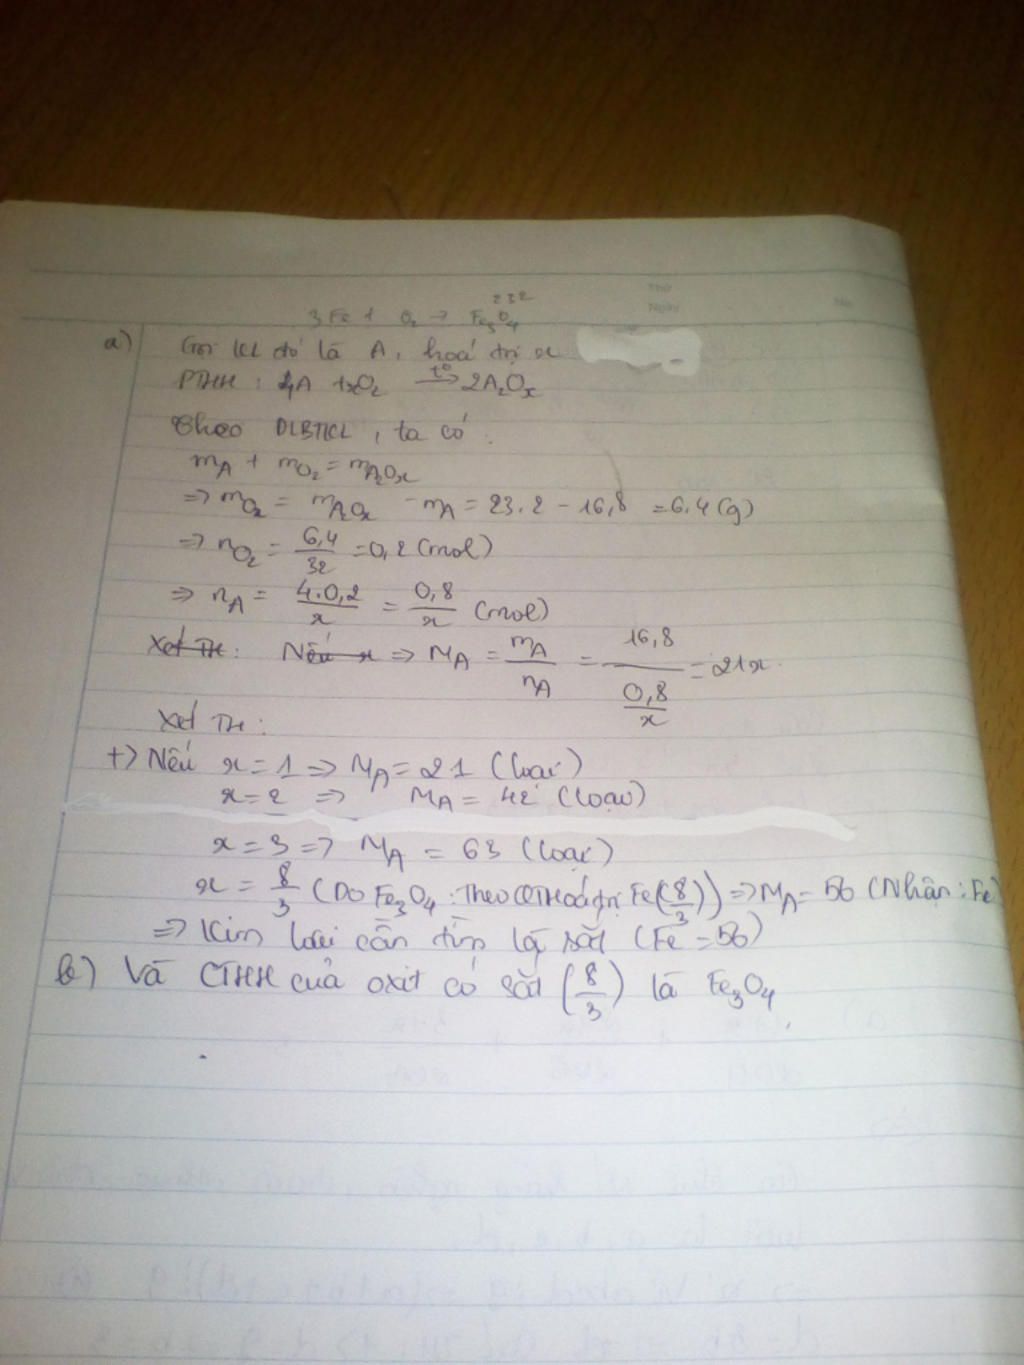 Thứ
Ngày
No
232
3Fe + O₂ → Fe₃O₄
a) Gọi KL đó là A, hoá trị x
PTHH: 4A + xO₂ —t°→ 2A₂Oₓ
Theo DLBTKL, ta có:
m_A + m_O₂ = m_A₂Oₓ
=> m_O₂ = m_A₂Oₓ - m_A = 23.2 - 16,8 = 6.4 (g)
=> n_O₂ = 6,4/32 = 0,2 (mol)
=> n_A = 4.0,2/x = 0,8/x (mol)
Xét TH: Nếu x => M_A = m_A/n_A = 16,8/(0,8/x) = 21x
Xét TH:
+) Nếu x = 1 => M_A = 21 (loại)
x = 2 => M_A = 42 (loại)
x = 3 => M_A = 63 (loại)
x = 8/3 (Do Fe₃O₄: Theo QT Hoá trị Fe(8/3)) => M_A = 56 (Nhận: Fe)
=> Kim loại cần tìm là sắt (Fe = 56)
b) Và CTHH của oxit có sắt (8/3) là Fe₃O₄